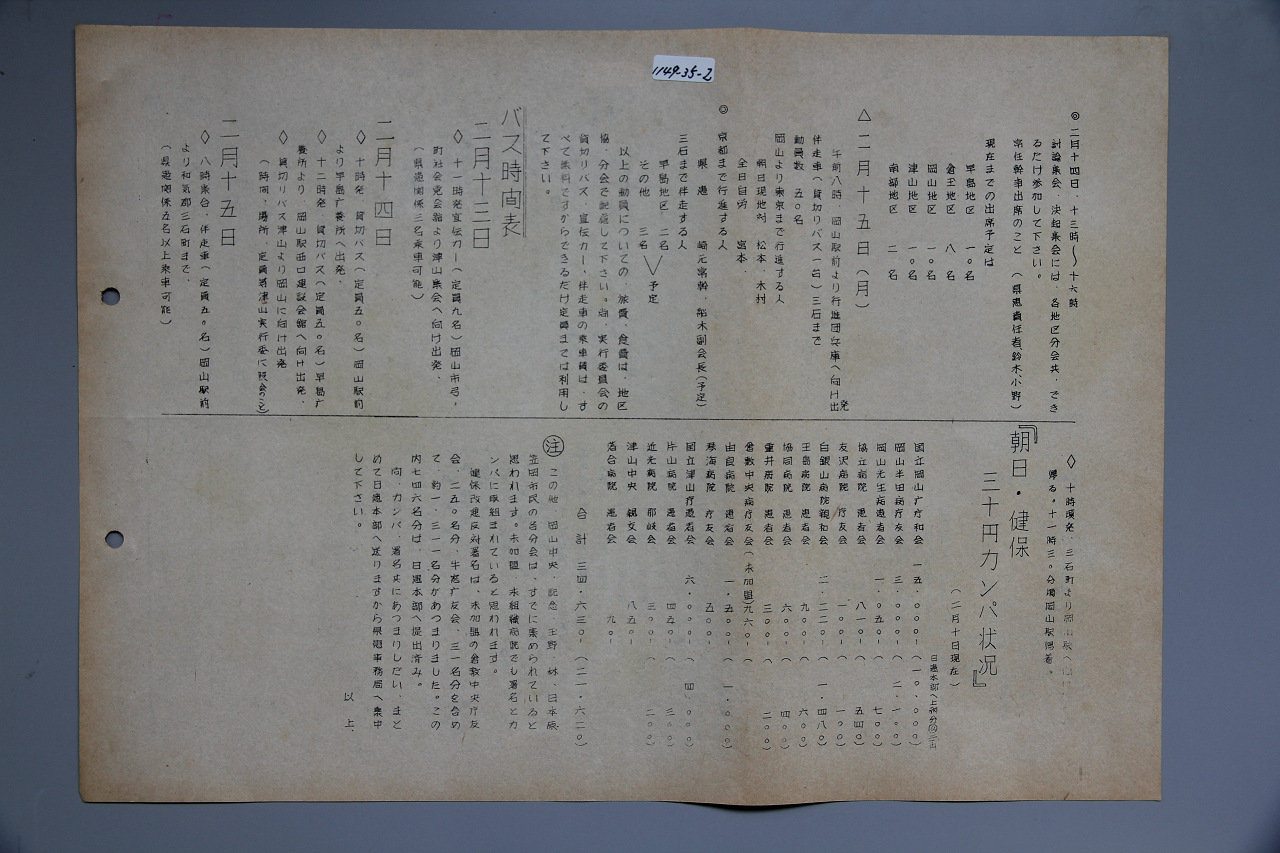 1149-35-2
◎二月十四日、十三時〜十六時
討論集会、決起集会には、各地区分会共、でき
るだけ参加して下さい。
常任幹事出席のこと（県患責任者、鈴木、小野）
現在までの出席予定は
早島地区 一〇名
倉玉地区 八名
岡山地区 一〇名
津山地区 一〇名
南部地区 二名
△二月十五日（月）
午前八時、岡山駅前より行進団兵庫へ向け出発
伴走車（貸切りバス一台）三石まで
動員数 五〇名
岡山より東京まで行進する人
朝日現地対 松本、木村
全日自労 宮本、
◎ 京都まで行進する人
県患 崎元常幹、鈴木副会長（予定）
三石まで伴走する人
早島地区 二名
その他 三名 ＞予定
以上の動員についての、旅費、食費は、地区
協、分会で配慮して下さい。尚、実行委員会の
貸切りバス、宣伝カー、伴走車の乗車賃は、す
べて無料ですからできるだけ定員までは利用し
て下さい。
バス時間表
二月十三日
◇ 十一時発宣伝カー（定員九名）岡山市弓
町社会党会館より津山集会へ向け出発、
（県患関係三名乗車可能）
二月十四日
◇ 十時発 貸切バス（定員五〇名）岡山駅前
より早島療養所へ出発、
◇ 十二時発 貸切バス（定員五〇名）早島療
養所より、岡山駅西口建設会館へ向け出発、
◇ 貸切りバス津山より岡山に向け出発
（時間、場所、定員等津山実行委に照会のこと）
二月十五日
◇ 八時集合、伴走車（定員五〇名）岡山駅前
より和気郡三石町まで、
（県患関係五名以上乗車可能）
◇ 十時頃発、三石町より岡山駅へ向け
帰る。十一時三〇分頃岡山駅帰着。
『朝日・健保
三十円カンパ状況』
（二月十日現在）
日患本部へ上納分
国立岡山療療和会 一五・〇〇〇-（一〇・〇〇〇）
岡山半田病療友会 三・〇〇〇-（ 二・一〇〇）
岡山光生病患者会 一・〇五〇-（ 七〇〇）
協立病院 患者会 八一〇-（ 五四〇）
友沢病院 療友会 一〇〇-（ 一〇〇）
白銀山病院親和会 二・二二〇-（ 一・四八〇）
玉島病院 患者会 九〇〇-（ 六〇〇）
協同病院 患者会 六〇〇-（ 四〇〇）
重井病院 患者会 三〇〇-（ 二〇〇）
倉敷中央病療友会（未加盟）九六〇-（
由良病院 患者会 一・五〇〇-（ 一・〇〇〇）
療海病院 療友会 五〇〇-
国立津山療患者会 六・〇〇〇-（ 四・〇〇〇）
片山病院 患者会 四五〇-（ 三〇〇）
近光病院 那岐会 三〇〇-（ 二〇〇）
津山中央 親交会 八五〇-
落合病院 患者会 九〇-
合計 三四・六三〇-（二一・六二〇）
㊟ この他、岡山中央、記念、玉野、林、日本原、
笠岡市民の各分会は、すでに集められていると
思われます。未加盟、未組織病院でも署名とカ
ンパに取組まれていると思われます。
健保改悪反対署名は、未加盟の倉敷中央療友
会、二五〇名分、牛窓療友会、三一名分を含め
て、約一、三一一名分があつまりました。この
内七四六名分は、日患本部へ提出済み。
尚、カンパ、署名共にあつまりしだい、まと
めて日患本部へ送りますから県患事務局へ集中
して下さい。
以上、